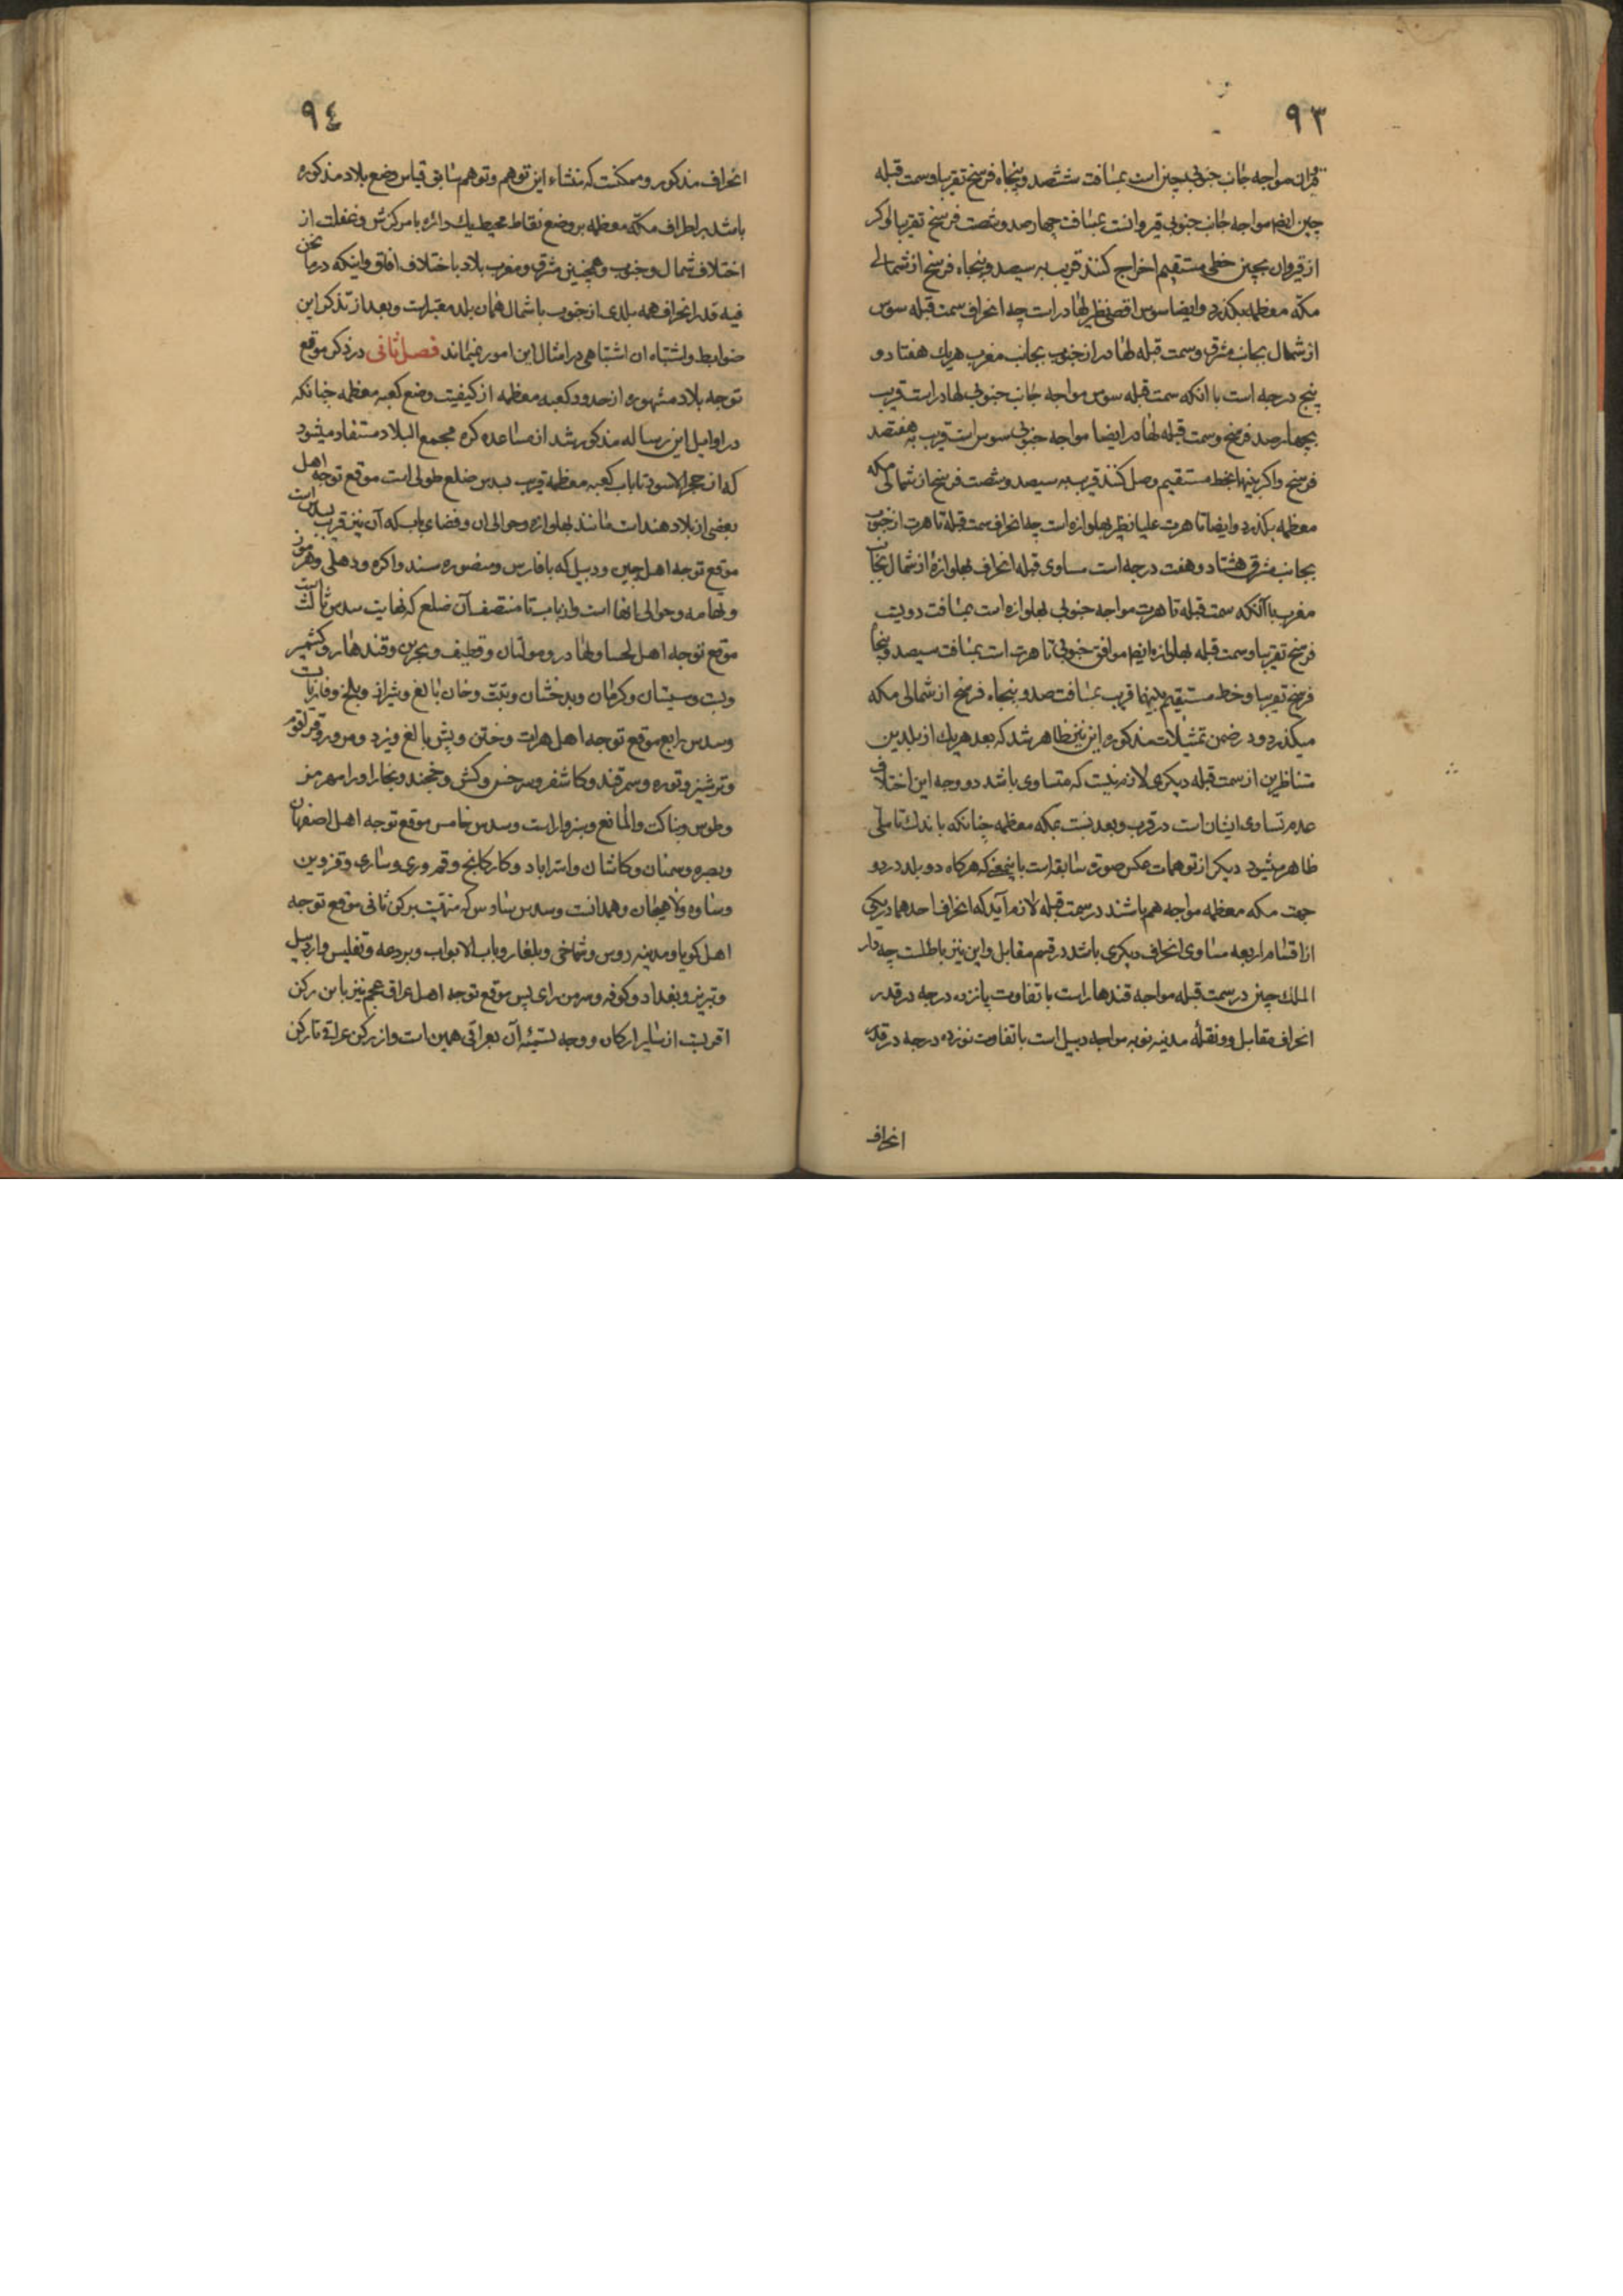 ۹۳
قیروان مواجه جانب جنوبی چین است بمسافت ششصد و پنجاه فرسخ تقریبا و سمت قبله
چین ایضا مواجه جانب جنوبی قیروانست بمسافت چهارصد و شصت فرسخ تقریبا و اگر
از قیروان بچین خطی مستقیم اخراج کنند قریب به سیصد و پنجاه فرسخ از شمالی
مکه معظمه بگذرد و ایضا سوس اقصی نظیر لهاور است چه انحراف سمت قبله سوس
از شمال بجانب مشرق و سمت قبله لهاور از جنوب بجانب مغرب هریک هفتاد و
پنج درجه است با انکه سمت قبله سوس مواجه جانب جنوبی لهاور است قریب
بچهارصد فرسخ و سمت قبله لهاور ایضا مواجه جنوبی سوس است قریب به هفتصد
فرسخ و اکر بینهما بخط مستقیم وصل کنند قریب به سیصد و شصت فرسخ از شمالی مکه
معظمه بگذرد و ایضا تاهرت علیا نظیر بهلواره است چه انحراف سمت قبله تاهرت از جنوب
بجانب مشرق هشتاد و هفت درجه است مساوی قبله انحراف بهلواره از شمال بجانب
مغرب با آنکه سمت قبله تاهرت مواجه جنوبی بهلواره است بمسافت دویست
فرسخ تقریبا و سمت قبله بهلواره ایضا موافق جنوبی تاهرت است بمسافت سیصد و پنجاه
فرسخ تقریبا و خط مستقیم بینهما قریب بمسافت صد و پنجاه فرسخ از شمالی مکه
میکذرد و در ضمن تمثیلات مذکوره این نیز ظاهر شد که بعد هریک از بلدین
متناظرین از سمت قبله دیکری لازم نیست که متساوی باشد و وجه این اختلاف
عدم تساوی ایشان است در قرب و بعد نسبت بمکه معظمه چنانکه باندک تاملی
ظاهر میشود دیکر از توهمات عکس صورة سابقه است باینمعنی که هرکاه دو بلد در دو
جهت مکه معظمه مواجه هم باشند در سمت قبله لازم آید که انحراف احدهما در یکی
از اقسام اربعه مساوی انحراف دیکری باشد در قسم مقابل و این نیز باطلست چه دار
الملک چین در سمت قبله مواجه قندهار است با تفاوت پانزده درجه در قدر
انحراف مقابل و ونقله مدینه نوبه مواجه دبیل است با تفاوت نوزده درجه در قدر
انحراف
۹٤
انحراف مذکور و ممکنست که منشاء این توهم و توهم سابق قیاس وضع بلاد مذکوره
باشد بر اطراف مکه معظمه بر وضع نقاط محیط یک دائره با مرکزش و غفلت از
اختلاف شمال و جنوب و همچنین مشرق و مغرب بلاد باختلاف افاق و اینکه در ما نحن
فیه قدر انحراف همه بلدی از جنوب یا شمال همان بلد معتبر است و بعد از تذکر این
ضوابط و اشتباه ان اشتباهی در امثال این امور نمیماند فصل ثانی در ذکر موقع
توجه بلاد مشهوره از حدود کعبه معظمه از کیفیت وضع کعبه معظمه چنانکه
در اوایل این رساله مذکور شد از مساعده کره مجمع البلاد مستفاد میشود
که از حجر الاسود تا باب کعبه معظمه قریب بسدس ضلع طولی است موقع توجه اهل
بعضی از بلاد هند است مانند بهلواره و حوالی ان و فضای باب که آن نیز قریب بسدس است
موقع توجه اهل چین و دبیل که با فارس و منصوره سند و اکره و دهلی و هرموز
و لهامه و حوالی انها است و از باب تا منتصف آن ضلع که نهایت سدس ثالث است
موقع توجه اهل لحسا و لهاور و مولتان و قطیف و بحرین و قندهار و کشمیر
و بست و سیستان و کرمان و بدخشان و تبت و خان بالغ و شیراز و بلخ و فاریاب
و سدس رابع موقع توجه اهل هرات و ختن و بیش بالغ و یزد و مرو و قراقوم
و ترشیز و توره و سمرقند و کاشغر و سرخس و کش و خجند و بخارا و رامهرمز
و طوس و بناکت و المالغ و سبزوار است و سدس خامس موقع توجه اهل اصفهان
و بصره و سمنان و کاشان و استراباد و کارکانج و قم و ری و ساری و قزوین
و ساوه و لاهیجان و همدانست و سدس سادس که منتهیست برکن ثانی موقع توجه
اهل کویا و مدینه روس و شماخی و بلغار و باب الابواب و بردعه و تفلیس و اردبیل
و تبریز و بغداد و کوفه و سر من رای پس موقع توجه اهل عراق عجم نیز باین رکن
اقربست از سایر ارکان و وجه تسمیه آن بعراقی همین است و از رکن عراقی تا رکن